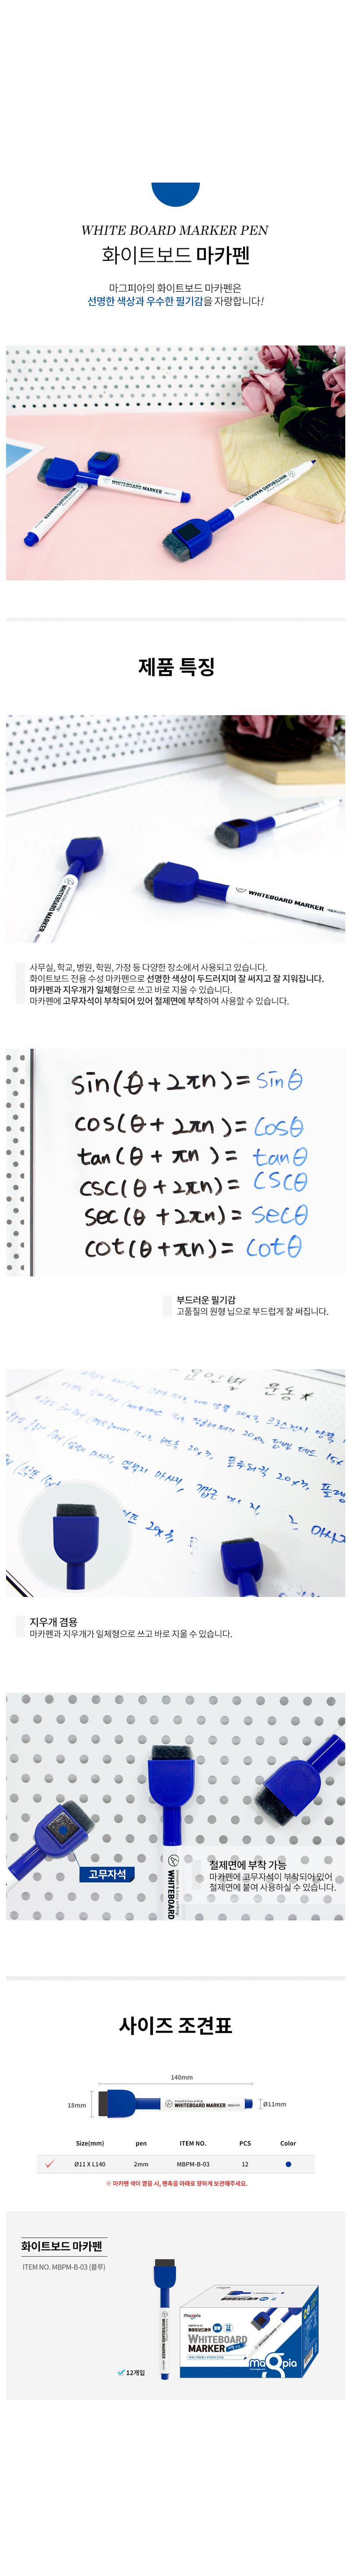 WHITE BOARD MARKER PEN
화이트보드 마카펜
마그피아의 화이트보드 마카펜은
선명한 색상과 우수한 필기감을 자랑합니다!
WHITEBOARD MARKER
WHITEBOARD MARKER
WHITEBOARD MARKER
제품 특징
WHITEBOARD MARKER
WHITEBOARD MARKER
사무실, 학교, 병원, 학원, 가정 등 다양한 장소에서 사용되고 있습니다.
화이트보드 전용 수성 마카펜으로 선명한 색상이 두드러지며 잘 써지고 잘 지워집니다.
마카펜과 지우개가 일체형으로 쓰고 바로 지울 수 있습니다.
마카펜에 고무자석이 부착되어 있어 철제면에 부착하여 사용할 수 있습니다.
sin(θ+2πn)= sinθ
cos(θ+2πn)= cosθ
tan(θ+πn)= tanθ
csc(θ+2πn)= cscθ
sec(θ+2πn)= secθ
cot(θ+πn)= cotθ
부드러운 필기감
고품질의 원형 닙으로 부드럽게 잘 써집니다.
요일별 운동*
지우개 겸용
마카펜과 지우개가 일체형으로 쓰고 바로 지울 수 있습니다.
고무자석
WHITEBOARD
철제면에 부착 가능
마카펜에 고무자석이 부착되어 있어
철제면에 붙여 사용하실 수 있습니다.
사이즈 조견표
140mm
18mm
WHITEBOARD MARKER
Ø11mm
Size(mm) pen ITEM NO. PCS Color
Ø11 X L140 2mm MBPM-B-03 12
※ 마카펜 색이 옅을 시, 펜촉을 아래로 향하게 보관해주세요.
화이트보드 마카펜
ITEM NO. MBPM-B-03 (블루)
WHITEBOARD MARKER
magpia
화이트보드마카
WHITEBOARD
MARKER
magpia
12개입